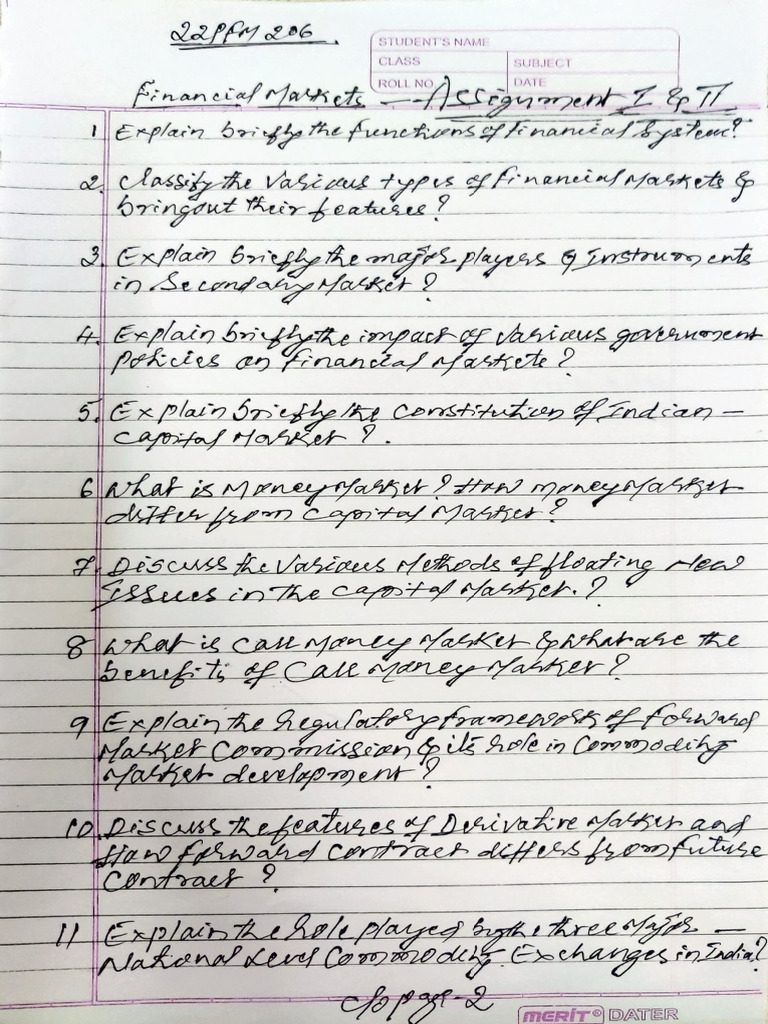 22PFM 206.
STUDENT'S NAME
CLASS
SUBJECT
ROLL NO
DATE
Financial Markets — Assignment I & II
1 Explain briefly the functions of Financial System?
2. Classify the Various types of Financial Markets &
bringout their features?
3. Explain briefly the major players & Instruments
in Secondary Market?
4. Explain briefly the impact of various government
policies on financial Markets?
5. Explain briefly the constitution of Indian -
Capital Market?.
6 What is Money Market? How money Market
differ from Capital Market?
7. Discuss the Various Methods of floating New
Issues in the capital Market.?
8 What is Call Money Market & what are the
benefits of Call Money Market?
9 Explain the Regulatory framework of Forward
Market Commission & its role in Commodity
Market development?
10. Discuss the features of Derivative Market and
How forward contract differs from future
contract?
11 Explain the role played by the three Major -
National Level Commodity Exchanges in India?
c/o page-2
MERIT® DATER